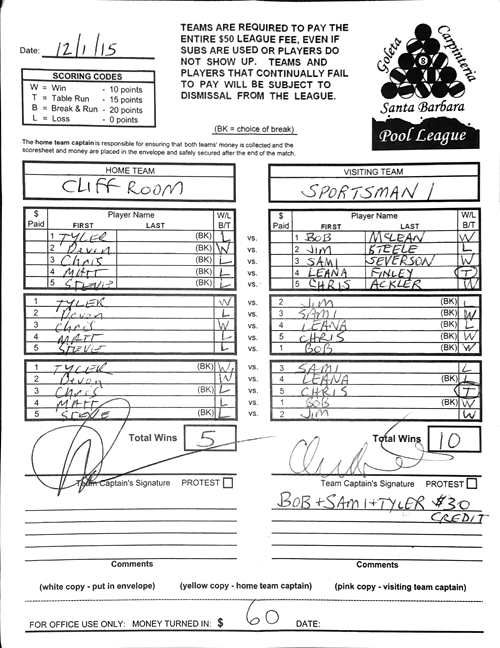 Date: 12/1/15
TEAMS ARE REQUIRED TO PAY THE
ENTIRE $50 LEAGUE FEE, EVEN IF
SUBS ARE USED OR PLAYERS DO
NOT SHOW UP. TEAMS AND
PLAYERS THAT CONTINUALLY FAIL
TO PAY WILL BE SUBJECT TO
DISMISSAL FROM THE LEAGUE.
(BK = choice of break)
Goleta Carpinteria
8
Santa Barbara
Pool League
SCORING CODES
W = Win - 10 points
T = Table Run - 15 points
B = Break & Run - 20 points
L = Loss - 0 points
The home team captain is responsible for ensuring that both teams' money is collected and the
scoresheet and money are placed in the envelope and safely secured after the end of the match.
HOME TEAM VISITING TEAM
CLIFF ROOM SPORTSMAN 1
$ Paid Player Name FIRST LAST W/L B/T $ Paid Player Name FIRST LAST W/L B/T
1 TYLER (BK) L vs. 1 BOB MCLEAN W
2 Devon (BK) W vs. 2 JIM STEELE L
3 Chris (BK) L vs. 3 SAMI SEVERSON W
4 MATT (BK) L vs. 4 LEANA FINLEY T
5 STEVIE (BK) L vs. 5 CHRIS ACKLER W
1 TYLER W vs. 2 JIM (BK) L
2 Devon L vs. 3 SAMI (BK) W
3 Chris W vs. 4 LEANA (BK) L
4 MATT L vs. 5 CHRIS (BK) W
5 STEVIE L vs. 1 BOB (BK) W
1 TYLER (BK) W vs. 3 SAMI L
2 Devon W vs. 4 LEANA (BK) L
3 Chris (BK) L vs. 5 CHRIS T
4 MATT L vs. 1 BOB (BK) W
5 STEVE (BK) L vs. 2 JIM W
Total Wins 5 Total Wins 10
Team Captain's Signature PROTEST Team Captain's Signature PROTEST
BOB + SAMI + TYLER $30
CREDIT
Comments Comments
(white copy - put in envelope) (yellow copy - home team captain) (pink copy - visiting team captain)
FOR OFFICE USE ONLY: MONEY TURNED IN: $ 60 DATE: